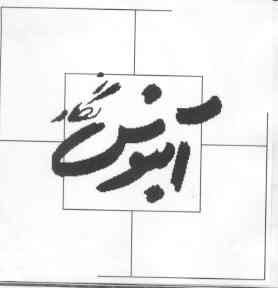 آبنوس
نگار